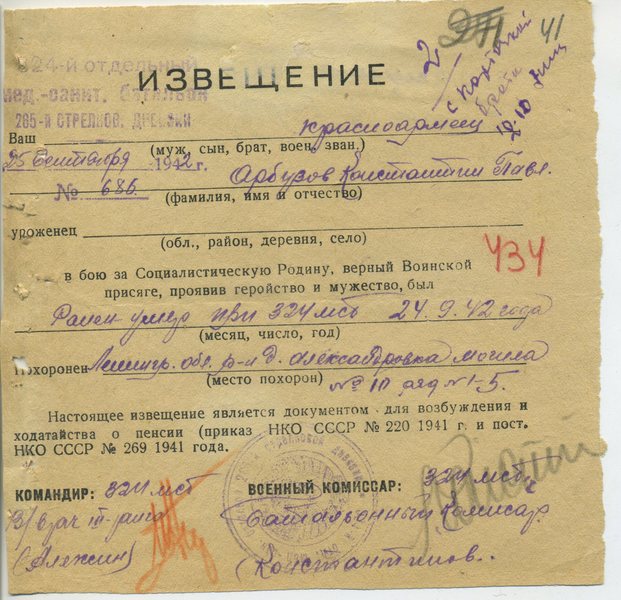 324-й отдельный
мед.-санит. батальон
265-й СТРЕЛКОВ. ДИВИЗИИ
25 Сентября 1942 г.
№ 686.
ИЗВЕЩЕНИЕ
2
41
с
брата
Ваш красноармеец
(муж, сын, брат, воен. зван.)
Арбузов Константин Павл.
(фамилия, имя и отчество)
уроженец
(обл., район, деревня, село)
434
в бою за Социалистическую Родину, верный Воинской
присяге, проявив геройство и мужество, был
Ранен умер при 324 мсб 24.9.42 года
(месяц, число, год)
Похоронен Ленингр. обл. р-н д. Александровка могила
(место похорон) № 10 ряд №1-5.
Настоящее извещение является документом для возбуждения и
ходатайства о пенсии (приказ НКО СССР № 220 1941 г. и пост.
НКО СССР № 269 1941 года.
КОМАНДИР: 324 мсб
В/врач III-ранга
(Аляжин)
ВОЕННЫЙ КОМИССАР: 324 мсб
Батальонный Комиссар
(Константинов.